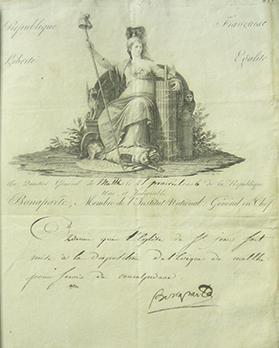 République Française
Liberté Egalité
Au Quartier Général de Malthe le 25 prairial an 6 de la République
Une et Indivisible.
Bonaparte, Membre de l'Institut National, Général en Chef
que l'Eglise de St jean soit
mise à la disposition de l'évêque de malthe
pour servir de
Bonaparte